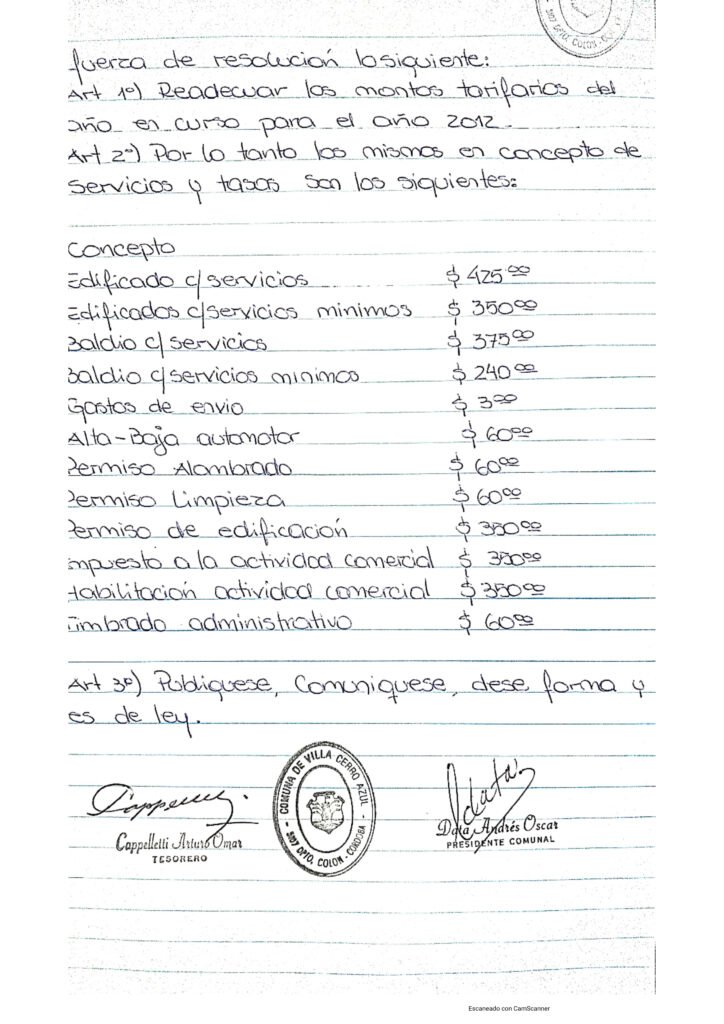 5107 DPTO. COLON - CO
fuerza de resolución lo siguiente:
Art 1º) Readecuar los montos tarifarios del
año en curso para el año 2012.
Art 2º) Por lo tanto los mismos en concepto de
servicios y tasas son los siguientes:
Concepto
Edificado c/servicios $ 425.00
Edificados c/servicios minimos $ 350.00
Baldio c/servicios $ 375.00
Baldio c/servicios minimos $ 240.00
Gastos de envio $ 3.00
Alta-Baja automotor $ 60.00
Permiso Alambrado $ 60.00
Permiso Limpieza $ 60.00
Permiso de edificación $ 350.00
mpuesto a la actividad comercial $ 350.00
Habilitación actividad comercial $ 350.00
Timbrado administrativo $ 60.00
Art 3º) Publiquese, Comuniquese, dese forma y
es de ley.
COMUNA DE VILLA CERRO AZUL
5107 DPTO. COLON - CORDOBA
Cappelletti Arturo Omar
TESORERO
Data Andrés Oscar
PRESIDENTE COMUNAL
Escaneado con CamScanner